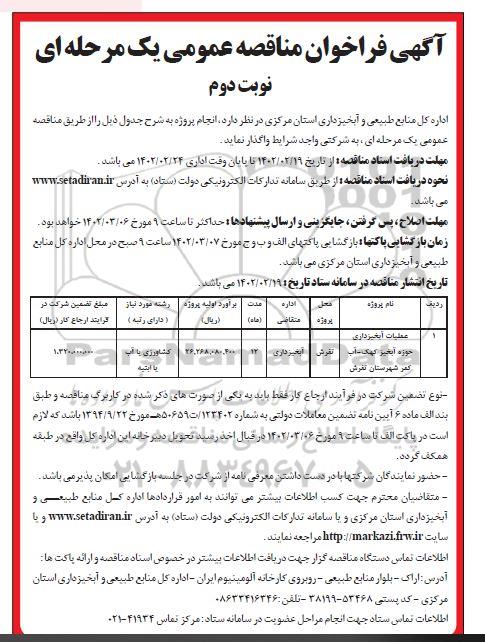 آگهی فراخوان مناقصه عمومی یک مرحله ای
نوبت دوم
اداره کل منابع طبیعی و آبخیزداری استان مرکزی در نظر دارد، انجام پروژه به شرح جدول ذیل را از طریق مناقصه
عمومی یک مرحله ای، به شرکتی واجد شرایط واگذار نماید.
مهلت دریافت اسناد مناقصه: از تاریخ ۱۴۰۲/۰۲/۱۹ تا پایان وقت اداری ۱۴۰۲/۰۲/۲۴ می باشد.
نحوه دریافت اسناد مناقصه: از طریق سامانه تدارکات الکترونیکی دولت (ستاد) به آدرس www.setadiran.ir
می باشد.
مهلت اصلاح، پس گرفتن، جایگزینی و ارسال پیشنهادها: حداکثر تا ساعت ۹ مورخ ۱۴۰۲/۰۳/۰۶ خواهد بود.
زمان بازگشایی پاکتها: بازگشایی پاکتهای الف و ب و ج مورخ ۱۴۰۲/۰۳/۰۷ ساعت ۹ صبح در محل اداره کل منابع
طبیعی و آبخیزداری استان مرکزی می باشد.
تاریخ انتشار مناقصه در سامانه ستاد تاریخ: ۱۴۰۲/۰۲/۱۹ می باشد.
ردیف نام پروژه محل پروژه اداره متقاضی مدت (ماه) برآورد اولیه پروژه (ریال) رشته مورد نیاز (دارای رتبه) مبلغ تضمین شرکت در فرایند ارجاع کار (ریال)
۱ عملیات آبخیزداری حوزه آبخیز کهک-آب کمر شهرستان تفرش تفرش آبخیزداری ۱۲ ۲۶,۲۶۸,۰۸۰,۴۰۰ کشاورزی یا آب یا ابنیه ۱,۳۲۰,۰۰۰,۰۰۰
-نوع تضمین شرکت در فرآیند ارجاع کار فقط باید به یکی از صورت های ذکر شده در کاربرگ مناقصه و طبق
بند الف ماده ۶ آیین نامه تضمین معاملات دولتی به شماره ۱۲۳۴۰۲/ت۵۰۶۵۹هـ مورخ ۱۳۹۴/۹/۲۲ باشد که لازم
است در پاکت الف تا ساعت ۹ مورخ ۱۴۰۲/۰۳/۰۶ در قبال اخذ رسید، تحویل دبیرخانه این اداره کل واقع در طبقه
همکف گردد.
- حضور نمایندگان شرکتها با در دست داشتن معرفی نامه از شرکت در جلسه بازگشایی امکان پذیر می باشد.
- متقاضیان محترم جهت کسب اطلاعات بیشتر می توانند به امور قراردادها اداره کل منابع طبیعی و
آبخیزداری استان مرکزی و یا سامانه تدارکات الکترونیکی دولت (ستاد) به آدرس www.setadiran.ir و یا
سایت http://markazi.frw.ir مراجعه نمایند.
اطلاعات تماس دستگاه مناقصه گزار جهت دریافت اطلاعات بیشتر در خصوص اسناد مناقصه و ارائه پاکت ها:
آدرس: اراک - بلوار منابع طبیعی - روبروی کارخانه آلومینیوم ایران - اداره کل منابع طبیعی و آبخیزداری استان
مرکزی - کد پستی ۵۳۴۶۸-۳۸۱۹۹ -تلفن: ۰۸۶۳۳۴۱۶۳۴۶
اطلاعات تماس ستاد جهت انجام مراحل عضویت در سامانه ستاد: مرکز تماس ۴۱۹۳۴-۰۲۱
ParsNamadData